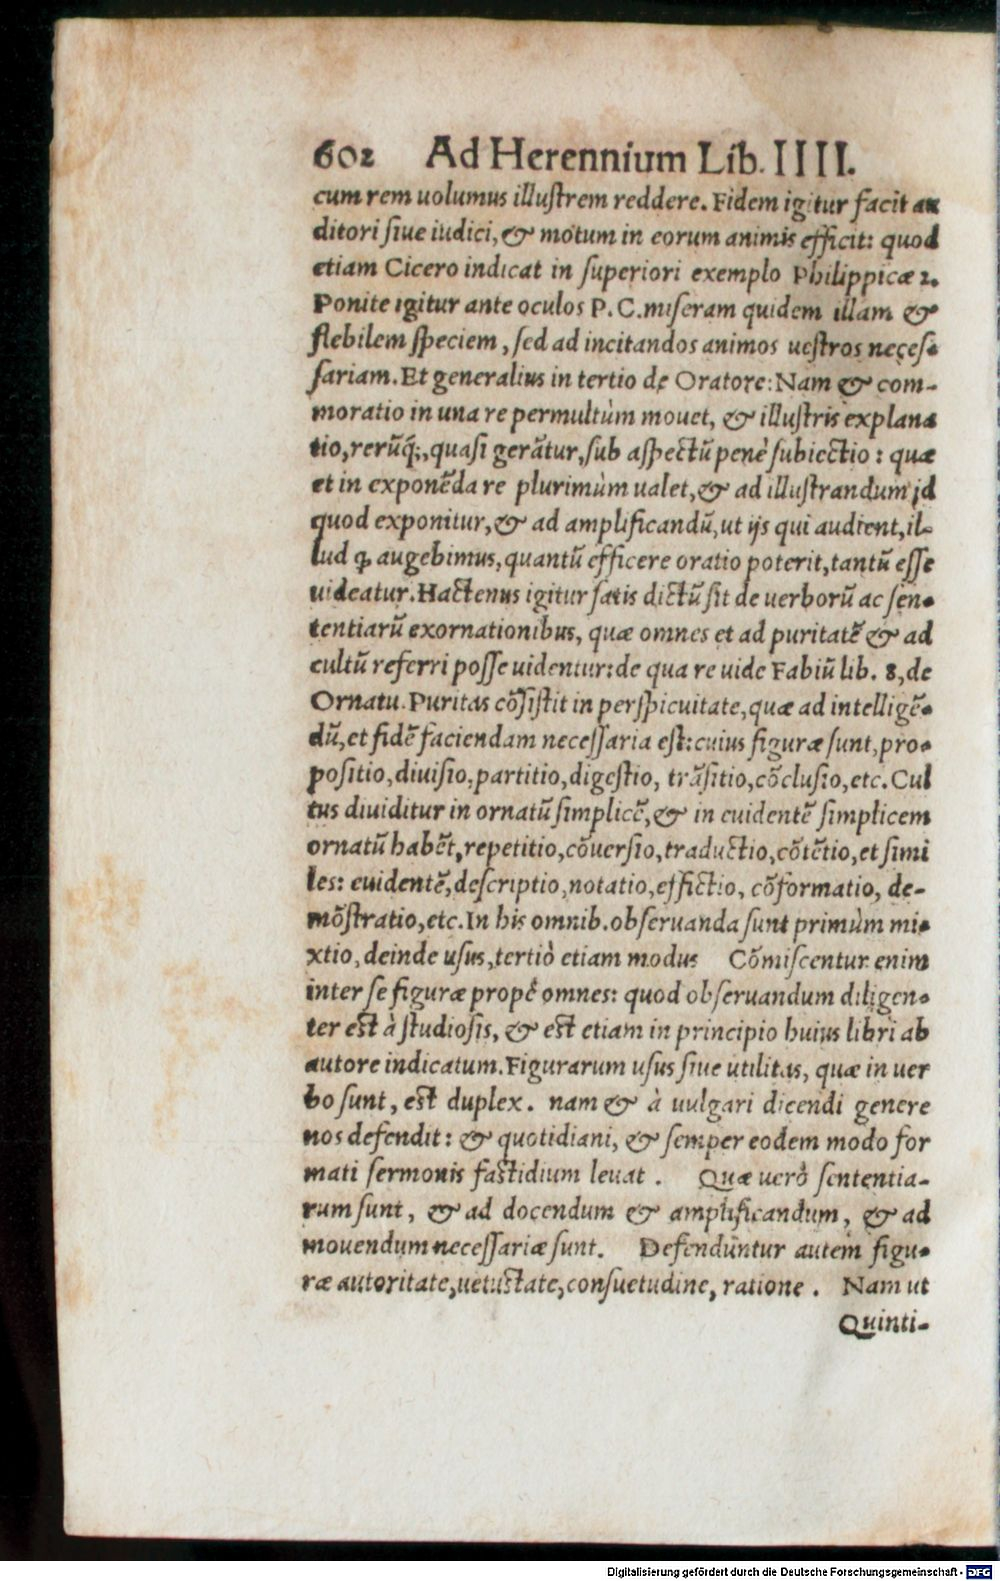 602 Ad Herennium Lib. IIII.
cum rem uolumus illustrem reddere. Fidem igitur facit au
ditori siue iudici, & motum in eorum animis efficit: quod
etiam Cicero indicat in superiori exemplo Philippicæ 2.
Ponite igitur ante oculos P. C. miseram quidem illam &
flebilem speciem, sed ad incitandos animos uestros neces-
sariam. Et generalius in tertio de Oratore: Nam & com-
moratio in una re permultùm mouet, & illustris explana
tio, rerũq́;, quasi gerãtur, sub aspectũ penè subiectio: quæ
et in exponẽda re plurimùm ualet, & ad illustrandum id
quod exponitur, & ad amplificandũ, ut ijs qui audient, il-
lud ꝙ augebimus, quantũ efficere oratio poterit, tantũ esse
uideatur. Hactenus igitur satis dictũ sit de uerborũ ac sen-
tentiarũ exornationibus, quæ omnes et ad puritatẽ & ad
cultũ referri posse uidentur: de qua re uide Fabiũ lib. 8, de
Ornatu. Puritas cõsistit in perspicuitate, quæ ad intelligẽ-
dũ, et fidẽ faciendam necessaria est: cuius figuræ sunt, pro-
positio, diuisio, partitio, digestio, trãsitio, cõclusio, etc. Cul
tus diuiditur in ornatũ simplicẽ, & in euidentẽ simplicem
ornatũ habẽt, repetitio, cõuersio, traductio, cõtẽtio, et simi
les: euidentẽ, descriptio, notatio, effictio, cõformatio, de-
mõstratio, etc. In his omnib. obseruanda sunt primùm mi-
xtio, deinde usus, tertiò etiam modus Cõmiscentur enim
inter se figuræ propè omnes: quod obseruandum diligen-
ter est à studiosis, & est etiam in principio huius libri ab
autore indicatum. Figurarum usus siue utilitas, quæ in uer
bo sunt, est duplex. nam & à uulgari dicendi genere
nos defendit: & quotidiani, & semper eodem modo for
mati sermonis fastidium leuat. Quæ uerò sententia-
rum sunt, & ad docendum & amplificandum, & ad
mouendum necessariæ sunt. Defenduntur autem figu-
ræ autoritate, uetustate, consuetudine, ratione. Nam ut
Quinti-
Digitalisierung gefördert durch die Deutsche Forschungsgemeinschaft - DFG